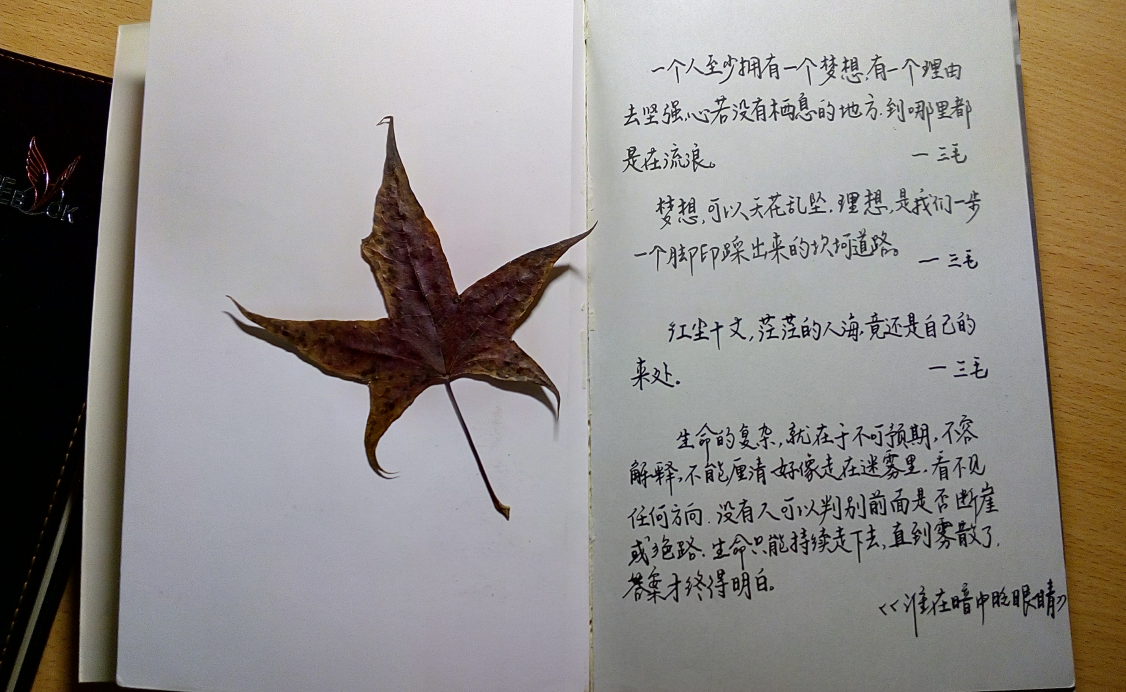 一个人至少拥有一个梦想,有一个理由
去坚强,心若没有栖息的地方.到哪里都
是在流浪。
— 三毛
梦想,可以天花乱坠.理想,是我们一步
一个脚印踩出来的坎坷道路。
— 三毛
红尘十丈,茫茫的人海,竟还是自己的
来处。
— 三毛
生命的复杂,就在于不可预期,不容
解释,不能厘清.好像走在迷雾里.看不见
任何方向.没有人可以判别前面是否断崖
或绝路.生命只能持续走下去,直到雾散了.
答案才终得明白。
<<谁在暗中眨眼睛>>